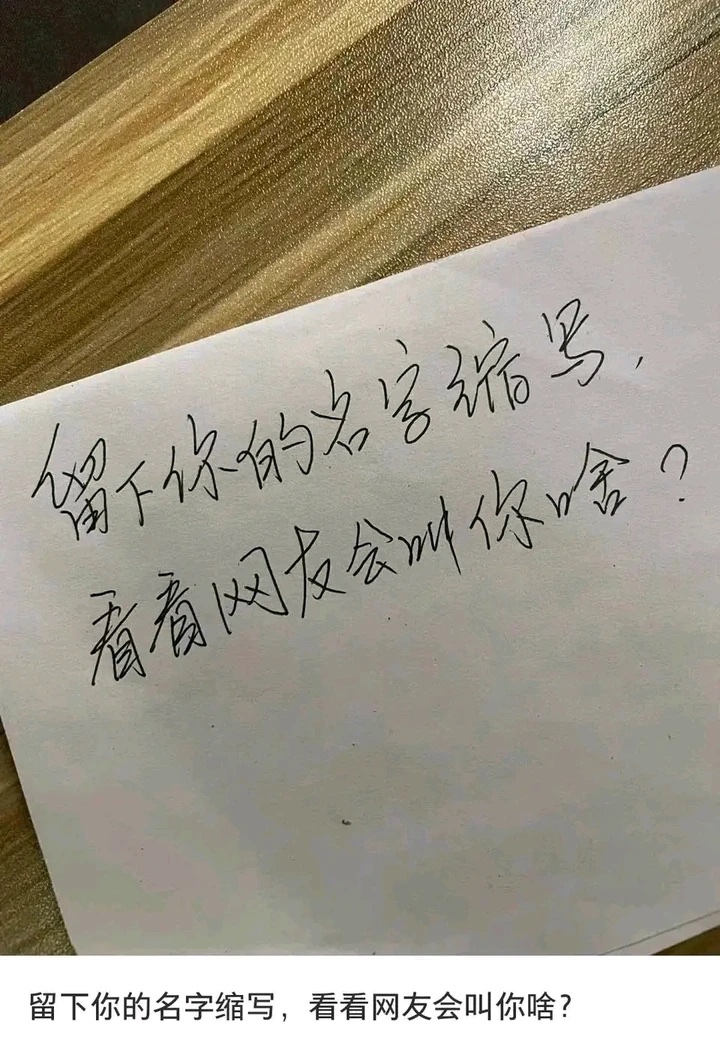 留下你的名字缩写,
看看网友会叫你啥?
留下你的名字缩写，看看网友会叫你啥？